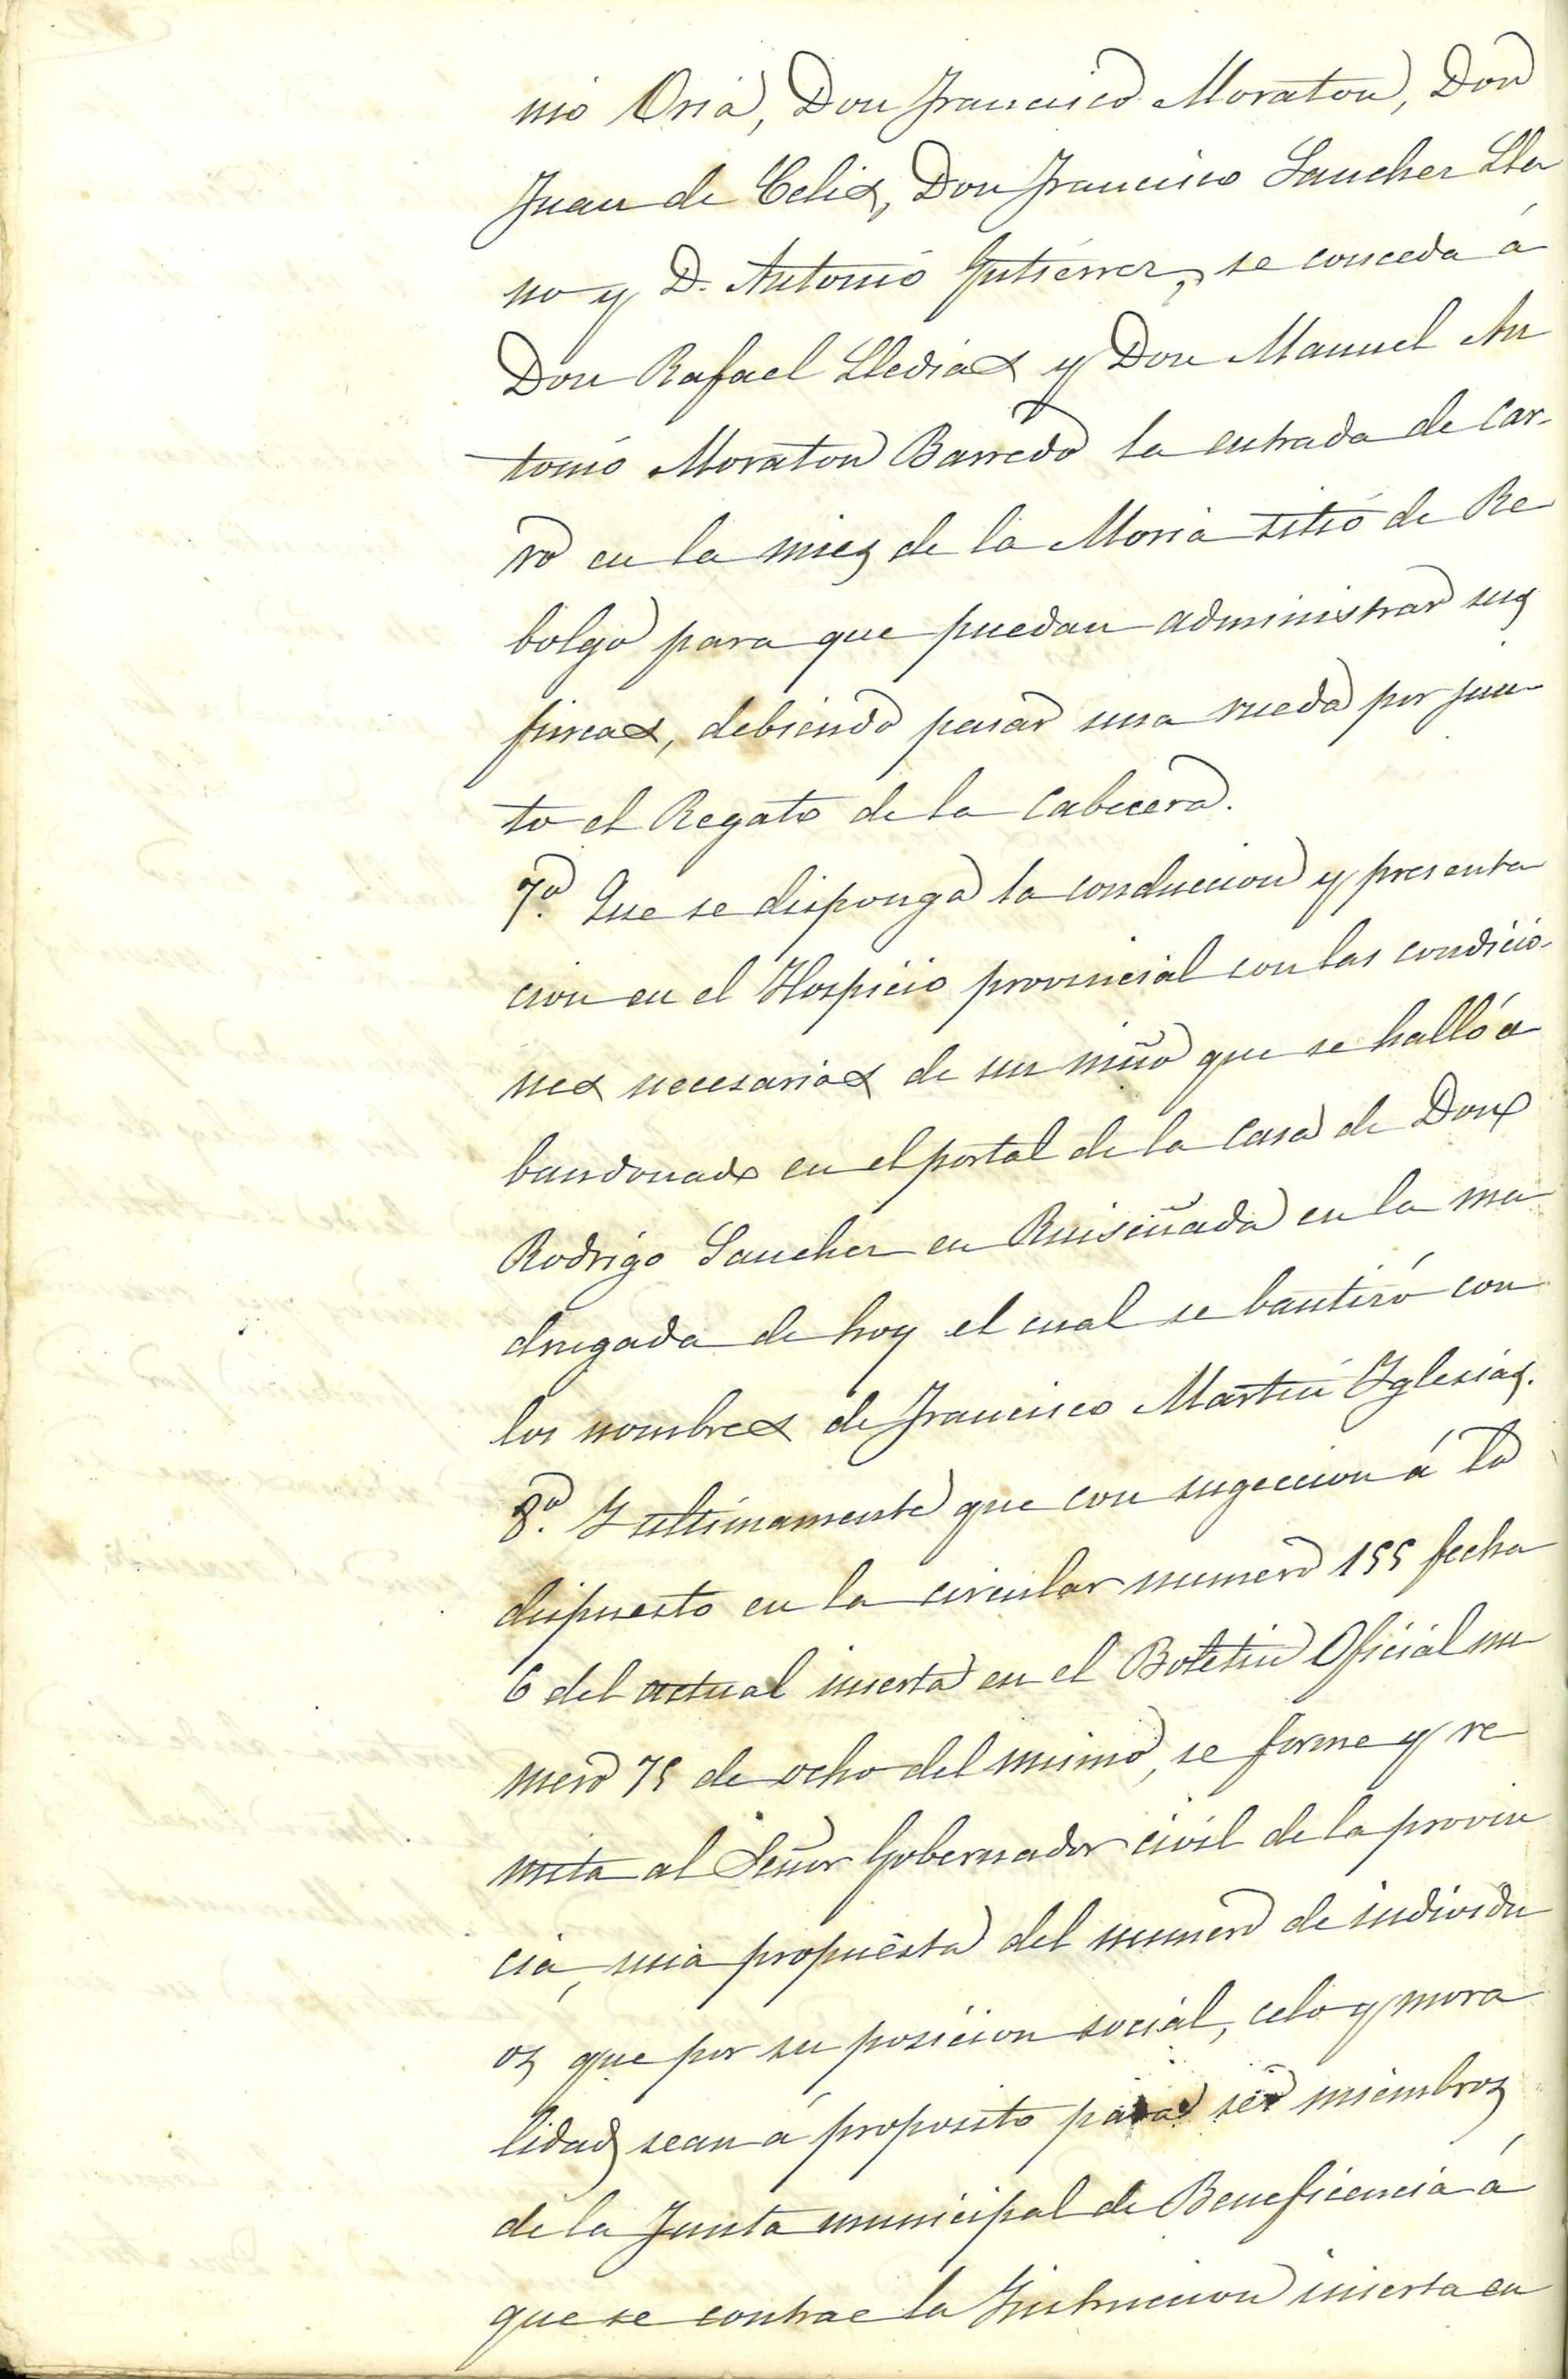 nio Oria, Don Francisco Moraton, Don
Juan de Celis, Don Francisco Sanchez Lla
no y D. Antonio Gutierrez, se conceda á
Don Rafael Lledias y Don Manuel An
tonio Moraton Barredo la entrada de car-
ro en la mies de la Moria sitio de Re
bolgo para que puedan administrar sus
fincas, debiendo pasar una rueda por jun-
to el Regato de la Cabecera.
7º. Que se disponga la conduccion y presenta
cion en el Hospicio provincial con las condicio-
nes necesarias de un niño que se halló a
bandonado en el portal de la casa de Don
Rodrigo Sanchez en Ruiseñada en la ma
drugada de hoy el cual se bautizó con
los nombres de Francisco Martin Iglesias.
8º. Y ultimamente que con sugeccion á lo
dispuesto en la circular numero 155 fecha
6 del actual inserta en el Boletin Oficial nu
mero 75 de ocho del mismo, se forme y re
mita al Señor Gobernador civil de la provin
cia, una propuesta del numero de individu
os que por su posicion social, celo y mora
lidad sean á proposito para ser miembros
de la Junta municipal de Beneficencia á
que se contrae la Instruccion inserta en